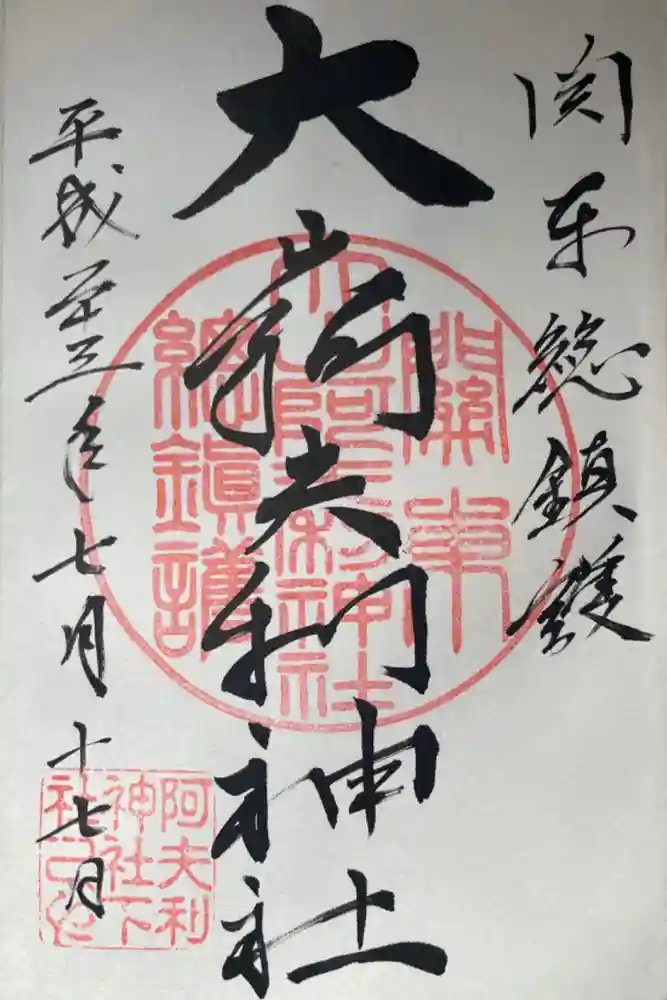 関東総鎮護
大山阿夫利神社
平成二十三年七月十七日
關東
大山阿夫利神社
總鎮護
阿夫利
神社下
社之印